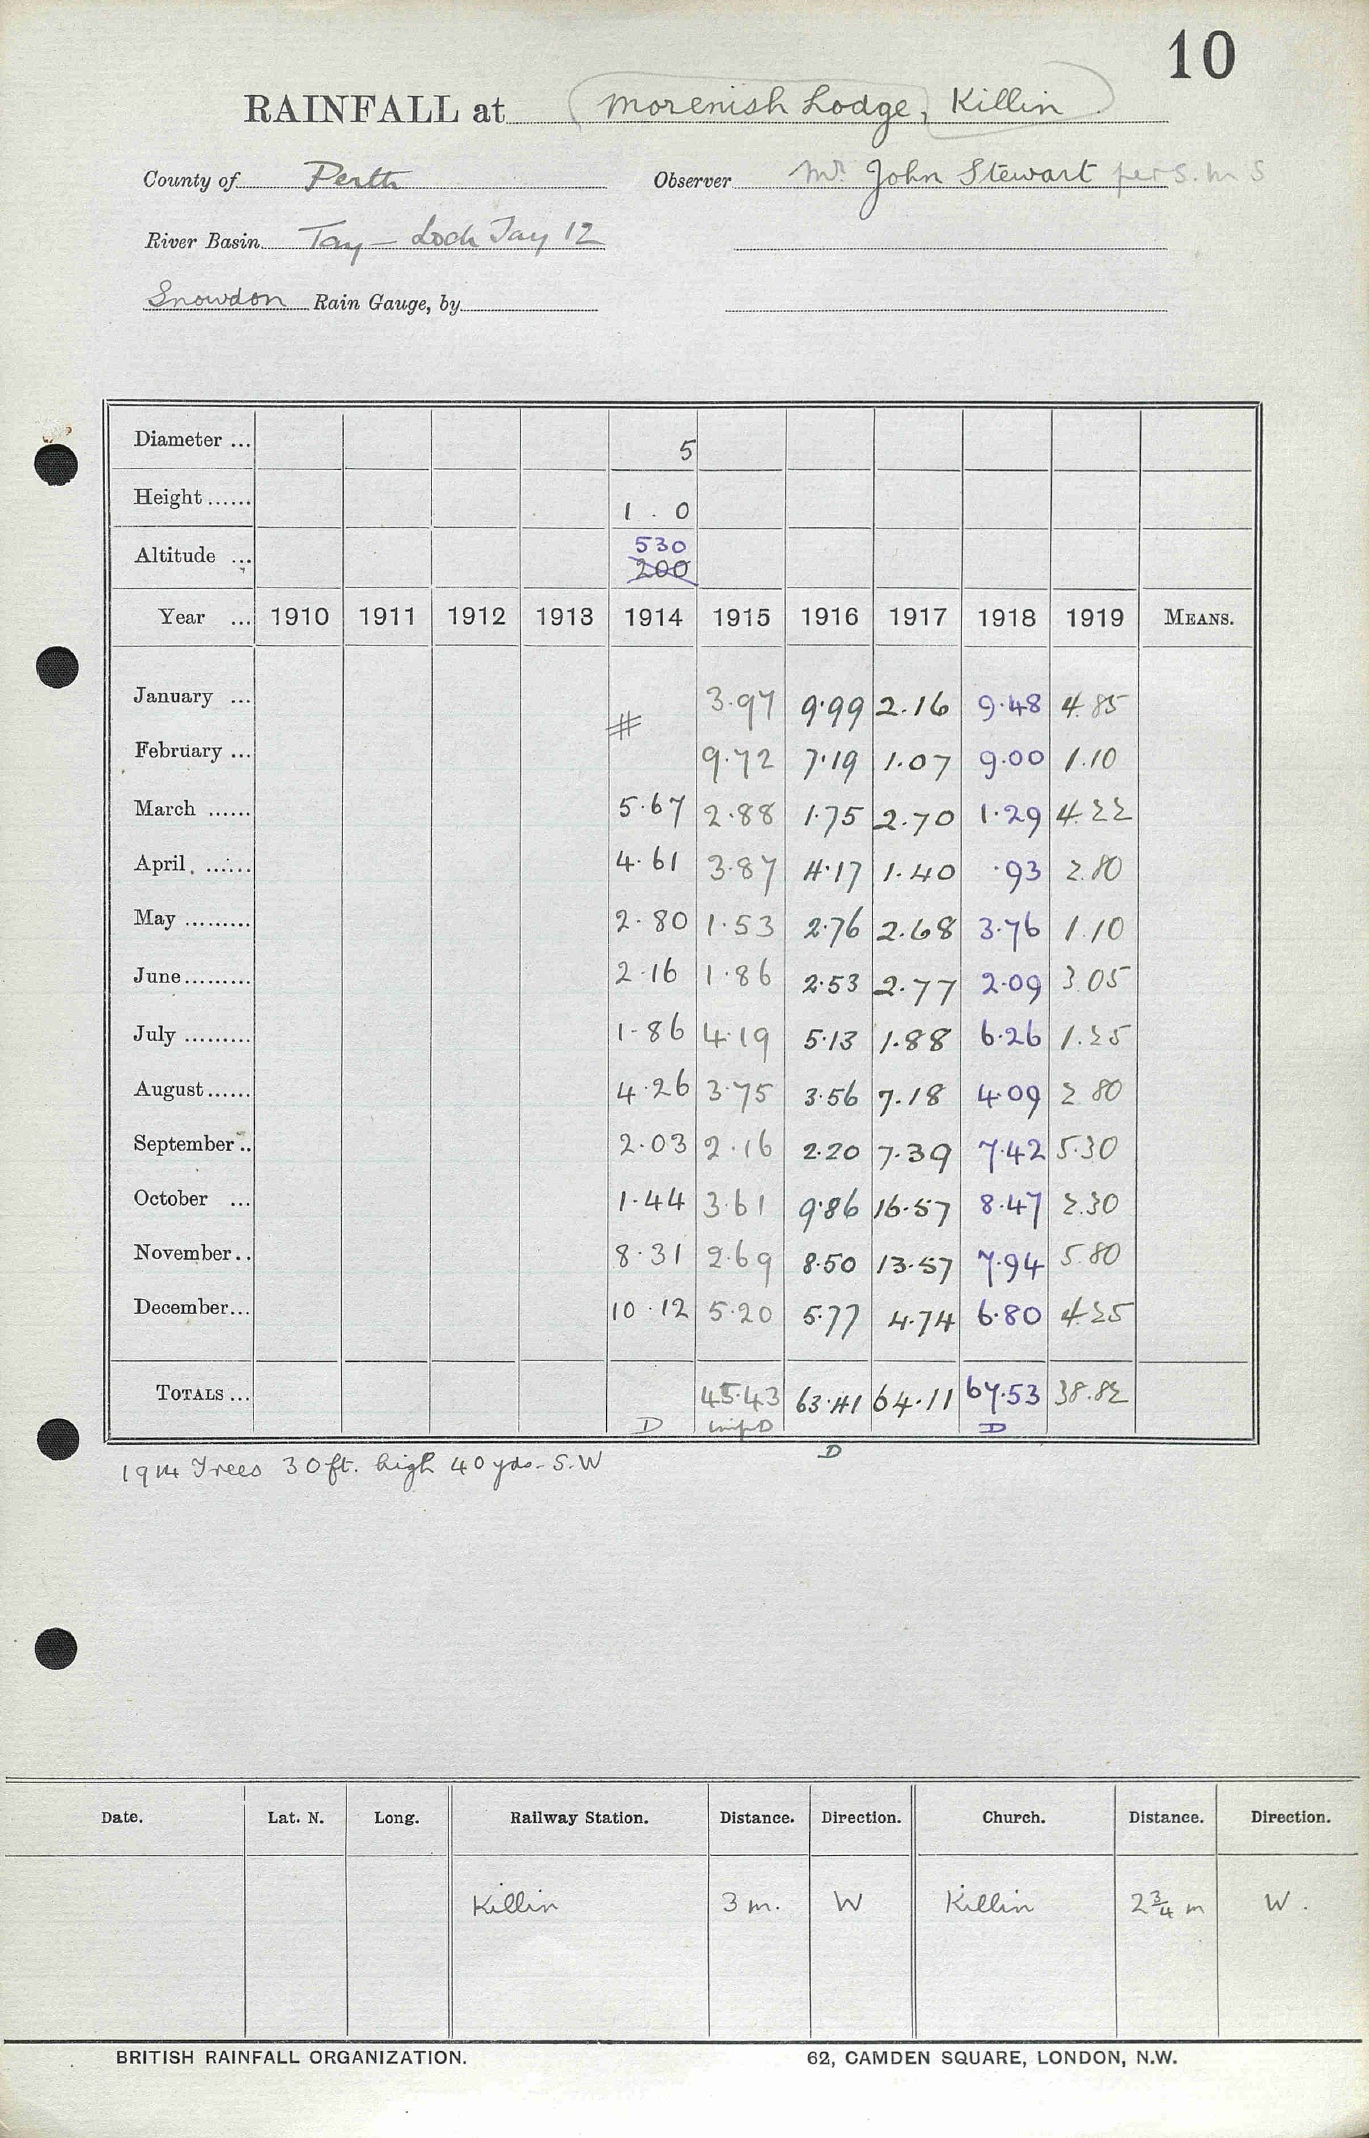 10
RAINFALL at Morenish Lodge, Killin
County of Perth Observer Mr. John Stewart per S. M S
River Basin Tay - Loch Tay 12
Snowdon Rain Gauge, by
Diameter ... 5
Height ...... 1 . 0
Altitude ... 530
200
Year ... 1910 1911 1912 1913 1914 1915 1916 1917 1918 1919 MEANS.
January ... # 3.97 9.99 2.16 9.48 4.85
February ... 9.72 7.19 1.07 9.00 1.10
March ...... 5.67 2.88 1.75 2.70 1.29 4.22
April ...... 4.61 3.87 4.17 1.40 .93 2.80
May ......... 2.80 1.53 2.76 2.68 3.76 1.10
June ......... 2.16 1.86 2.53 2.77 2.09 3.05
July ......... 1.86 4.19 5.13 1.88 6.26 1.25
August ...... 4.26 3.75 3.56 7.18 4.09 2.80
September .. 2.03 2.16 2.20 7.39 7.42 5.30
October ... 1.44 3.61 9.86 16.57 8.47 2.30
November .. 8.31 2.69 8.50 13.57 7.94 5.80
December ... 10.12 5.20 5.77 4.74 6.80 4.25
TOTALS ... 45.43 63.41 64.11 67.53 38.82
D D D
D
1914 Trees 30 ft. high 40 yds. S.W
Date. Lat. N. Long. Railway Station. Distance. Direction. Church. Distance. Direction.
Killin 3 m. W Killin 2¾ m W.
BRITISH RAINFALL ORGANIZATION. 62, CAMDEN SQUARE, LONDON, N.W.